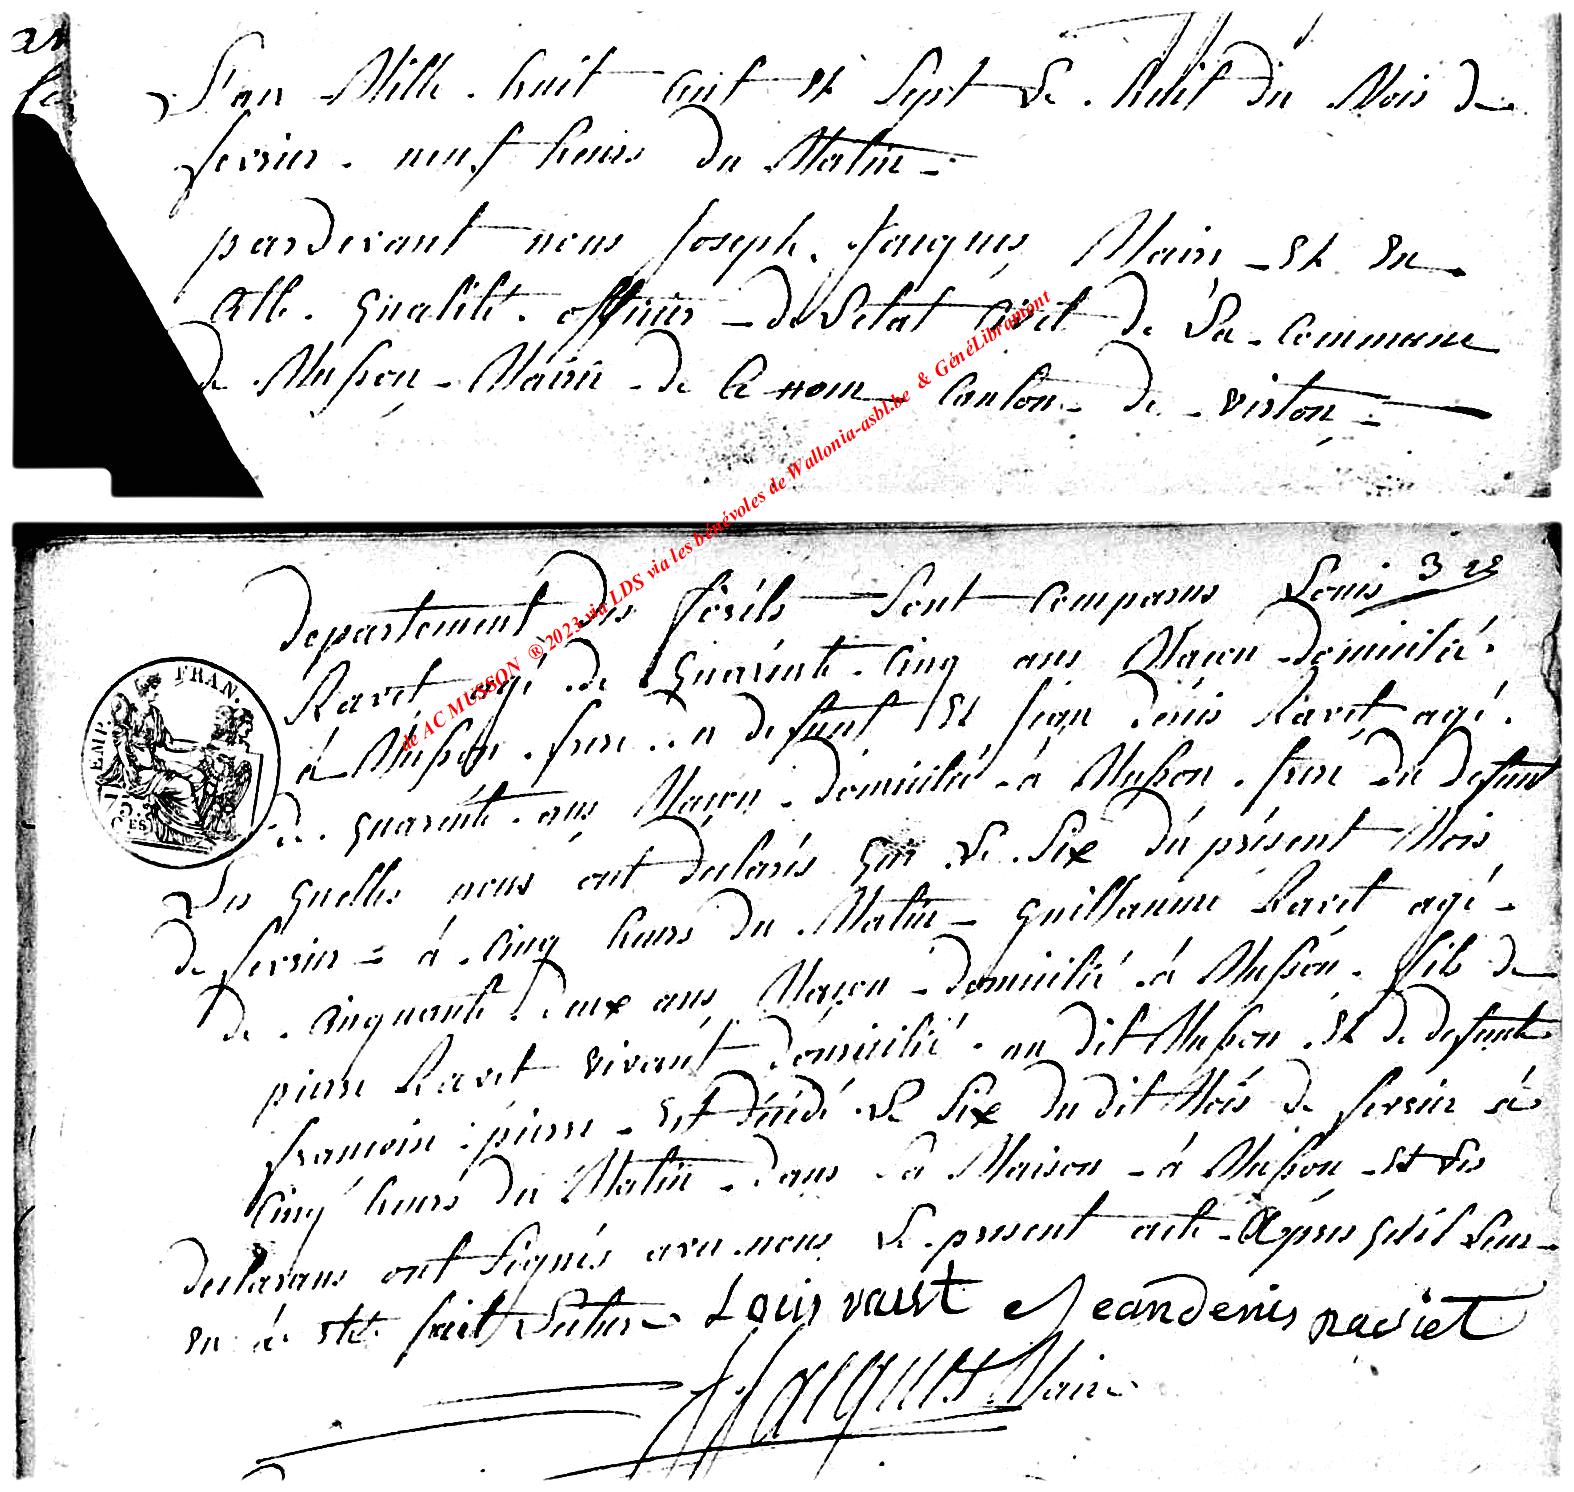 L'an Mille huit Cent et Sept Le huit du Mois de
fevrier neuf heures du Matin =
pardevant nous Joseph Jacques Maire et en
Cette qualité officier de Letat Civil de La Commune
de Musson Mairie de Ce nom Canton de virton =
departement des forêts Sont Comparus Louis 3 
Ravet agé de quarente Cinq ans Maçon domicilié
á Musson frere du defunt et Jean denis Ravet agé
de quarente ans Maçon domicilié á Musson frere du defunt
Les quelles nous ont declarés que Le Six du présent Mois
de fevrier = á Cinq heures du Matin Guillaume Ravet agé
de Cinquante deux ans Maçon domicilié á Musson fils de
pierre Ravet vivant domicilié au dit Musson et de defunte
francoise pierre est décédé Le Six du dit Mois de fevrier á
Cinq heures du Matin dans Sa Maison á Musson et Les
declarans ont Signés avec nous Le present acte Apres qu'il Leur
en á eté fait Lecture Louis ravet Jean denis raviet
JJacques Maire
EMP. FRAN.
75 CES
de AC MUSSON ® 2023 via LDS via les bénévoles de Wallonia-asbl.be & GénéLibramont